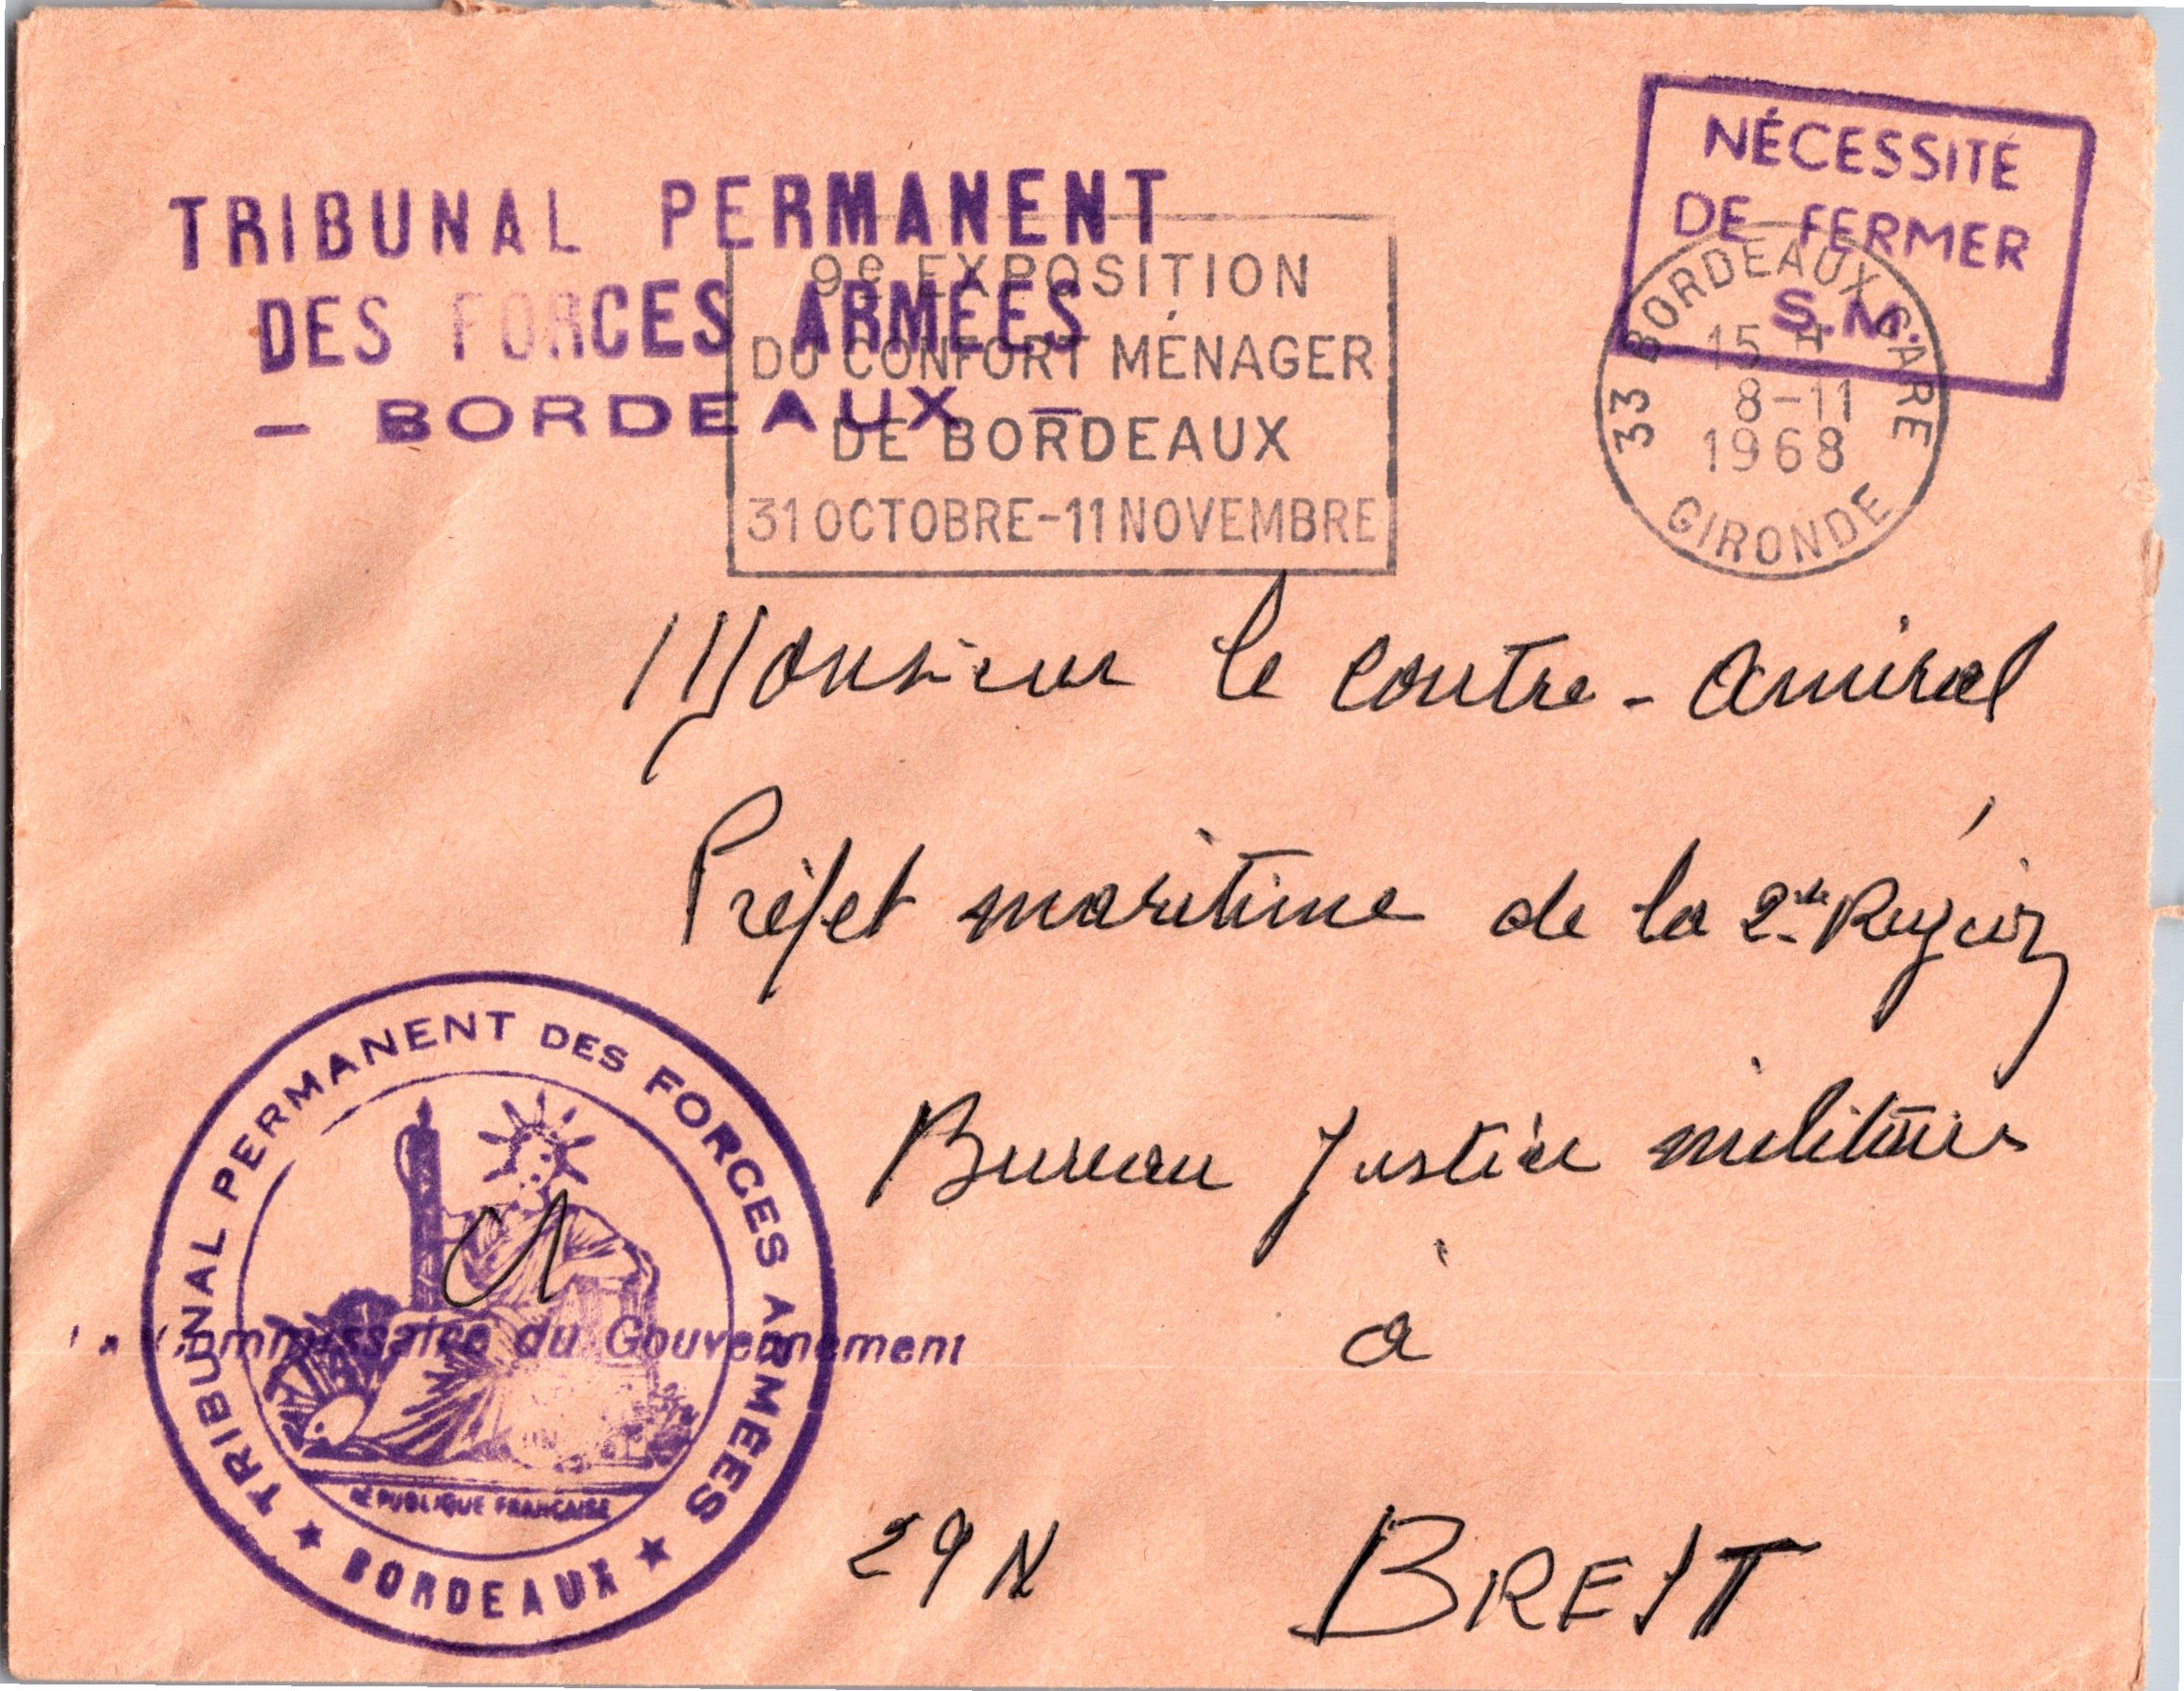 TRIBUNAL PERMANENT
DES FORCES ARMÉES
- BORDEAUX -
9e EXPOSITION
DU CONFORT MÉNAGER
DE BORDEAUX
31 OCTOBRE-11 NOVEMBRE
NÉCESSITÉ
DE FERMER
S.M.
33 BORDEAUX GARE
15 H
8-11
1968
GIRONDE
Monsieur le Contre-Amiral
Préfet maritime de la 2e Région
Bureau Justice militaire
à
29 N BREST
TRIBUNAL PERMANENT DES FORCES ARMÉES
Commissaire du Gouvernement
RÉPUBLIQUE FRANÇAISE
★ BORDEAUX ★